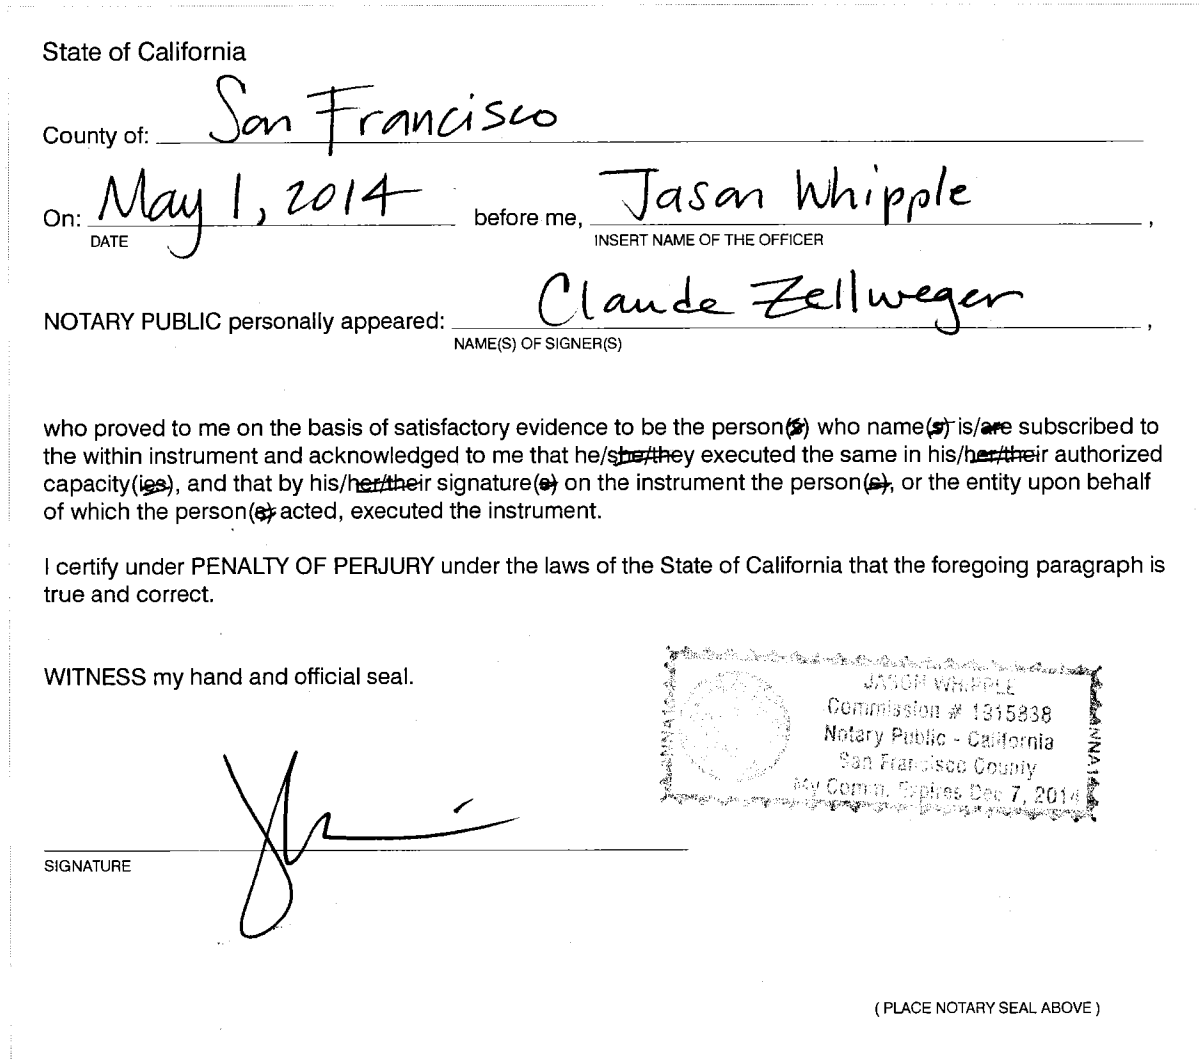 State of California
County of: San Francisco
On: May 1, 2014 before me, Jason Whipple,
DATE INSERT NAME OF THE OFFICER
NOTARY PUBLIC personally appeared: Claude Zellweger,
NAME(S) OF SIGNER(S)
who proved to me on the basis of satisfactory evidence to be the person(s) who name(s) is/are subscribed to
the within instrument and acknowledged to me that he/she/they executed the same in his/her/their authorized
capacity(ies), and that by his/her/their signature(s) on the instrument the person(s), or the entity upon behalf
of which the person(s) acted, executed the instrument.
I certify under PENALTY OF PERJURY under the laws of the State of California that the foregoing paragraph is
true and correct.
WITNESS my hand and official seal.
JASON WHIPPLE
Commission #
Notary Public - California
San Francisco County
My Comm. Expires Dec 7, 2014
SIGNATURE
( PLACE NOTARY SEAL ABOVE )